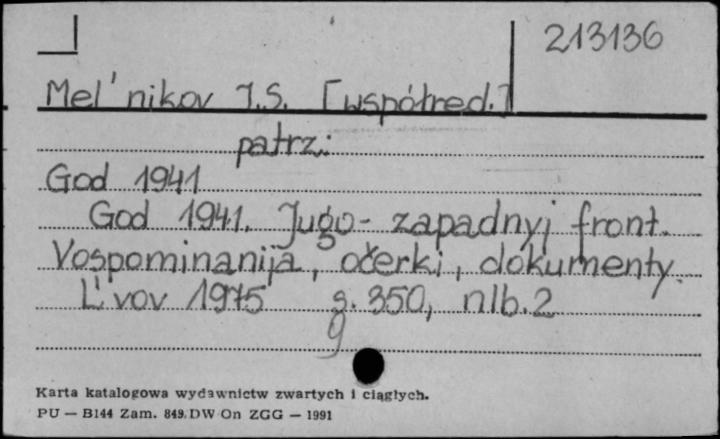 213136
Mel'nikov J.S. [współred.]
patrz:
God 1941
God 1941. Jugo-zapadnyj front.
Vospominanija, očerki, dokumenty.
L'vov 1975 s. 350, nlb. 2
g
Karta katalogowa wydawnictw zwartych i ciągłych.
PU — B144 Zam. 849. DW On ZGG — 1991